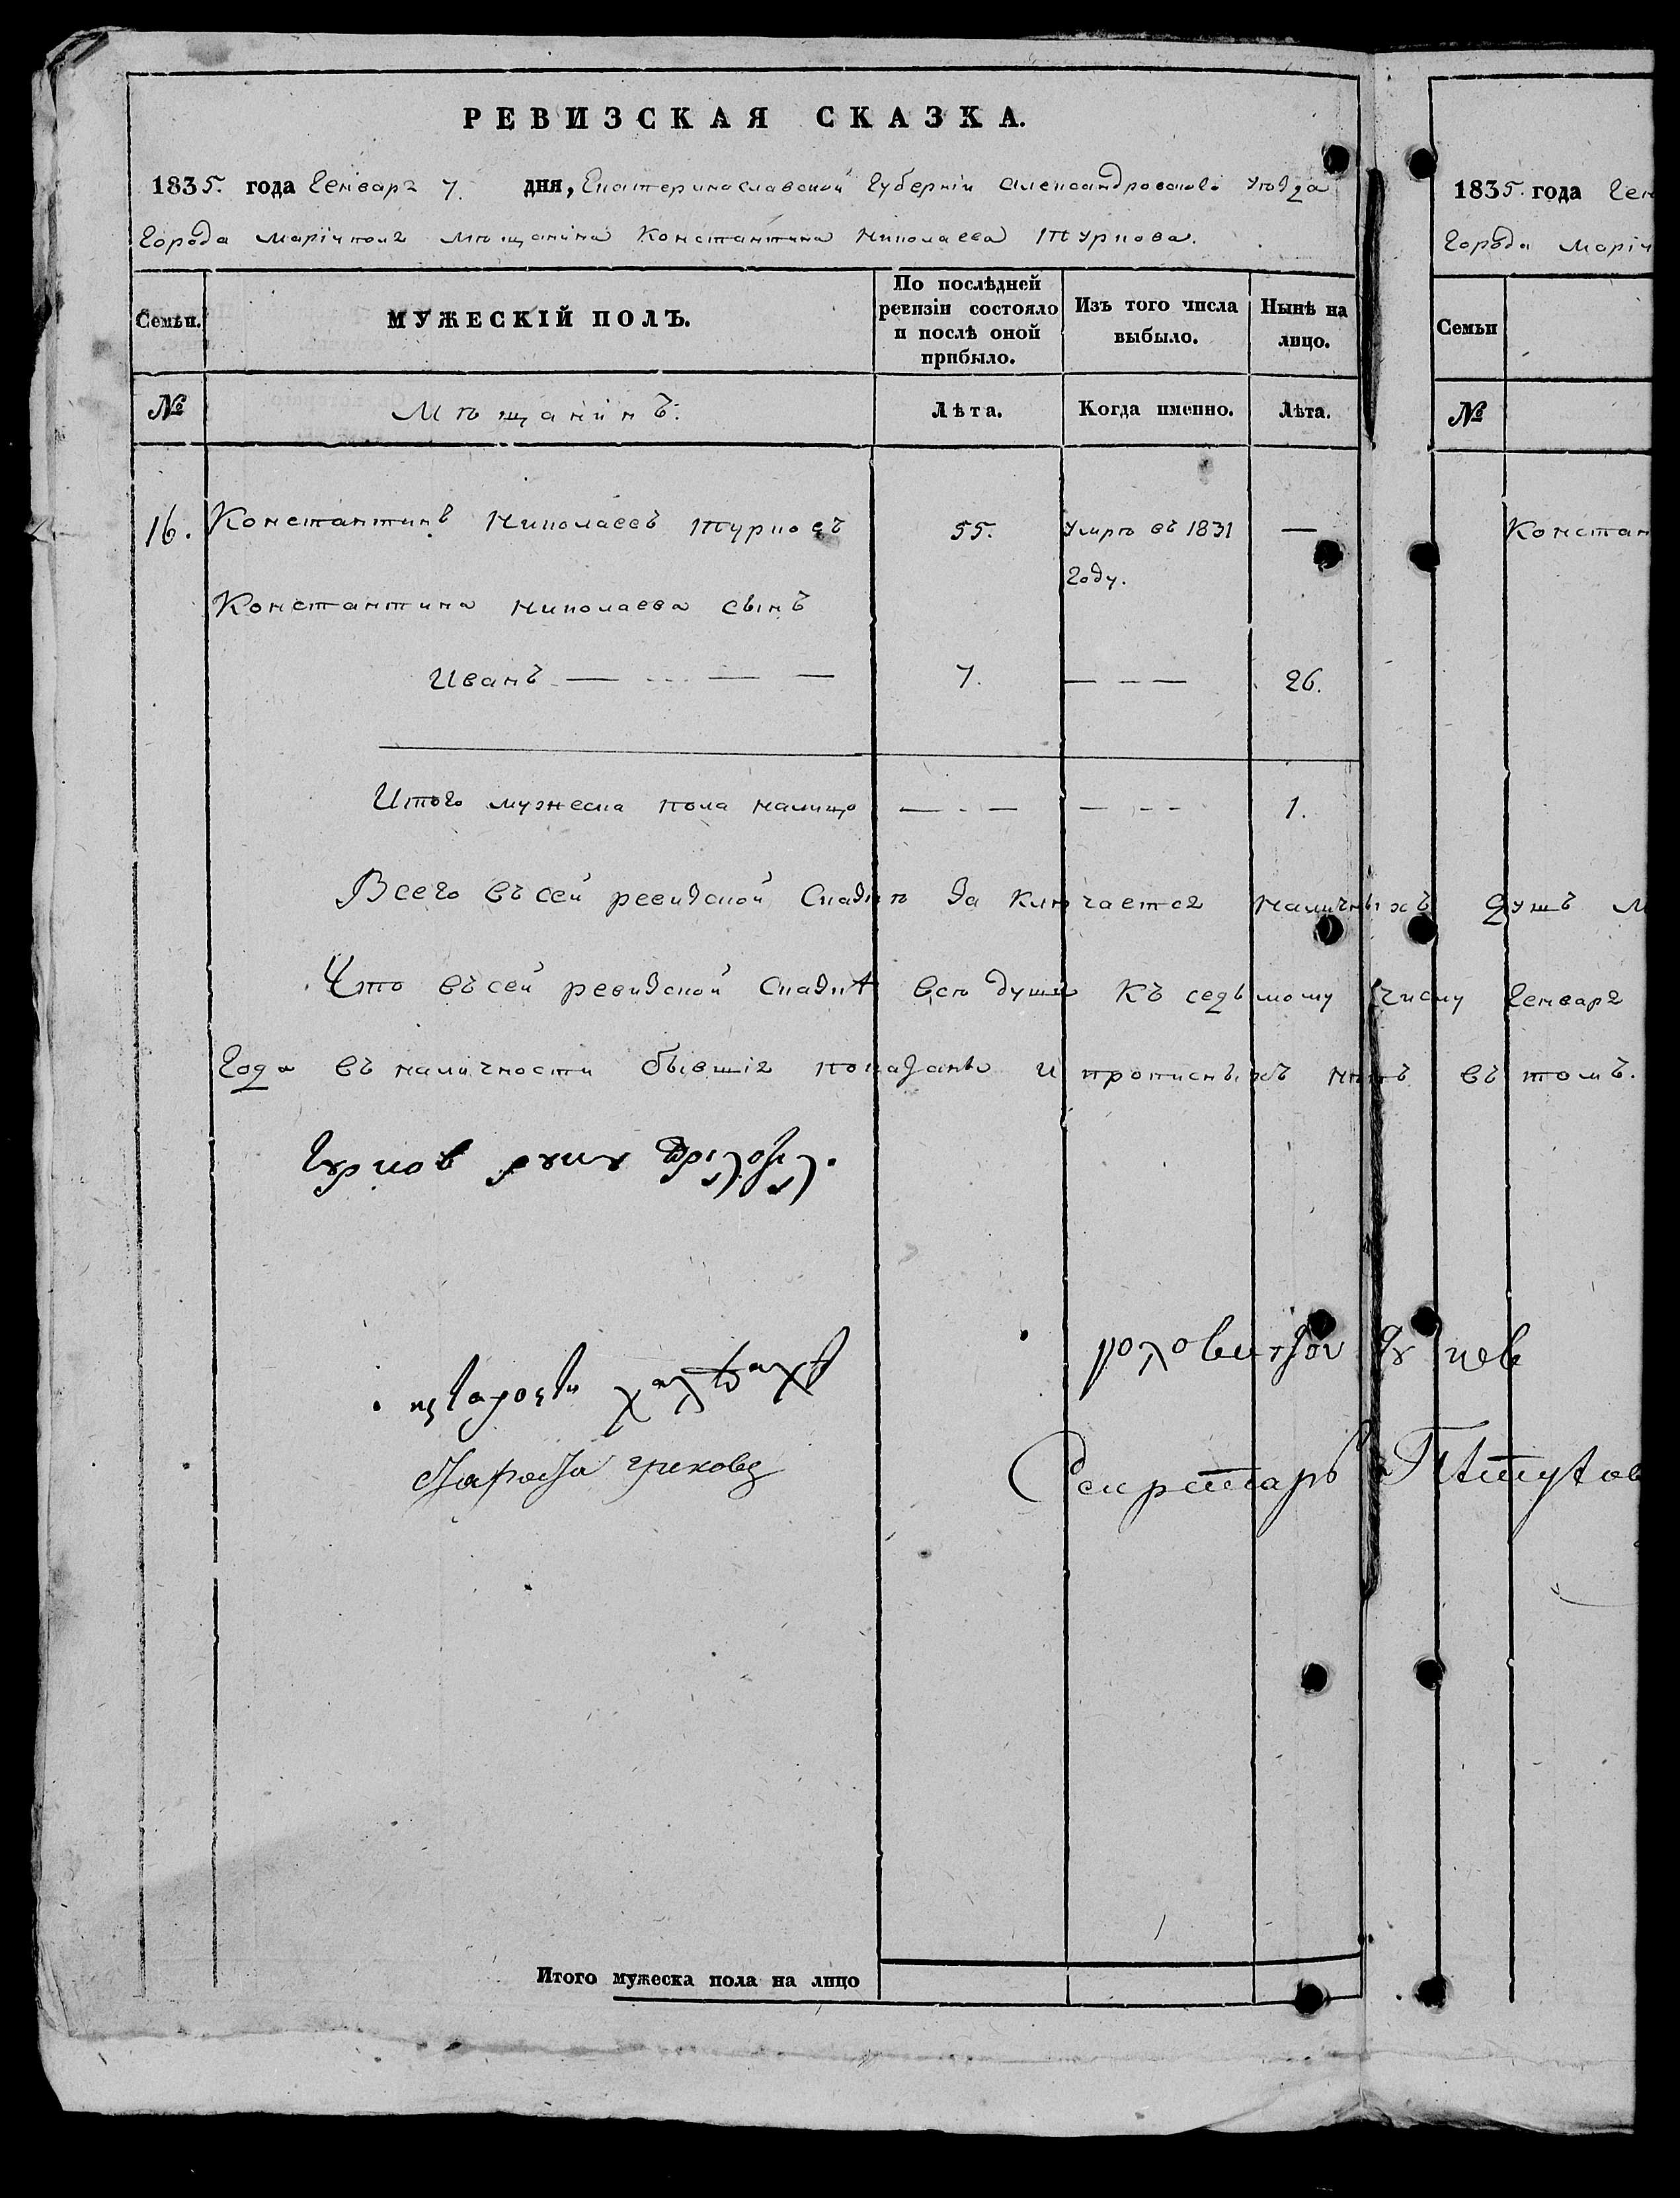 РЕВИЗСКАЯ СКАЗКА.
1835. года Генваря 7. дня, Екатеринославской Губерніи Александровскаго Уѣзда
Города Маріуполя Мѣщанина Константина Николаева Туркова.
Семьи.
МУЖЕСКІЙ ПОЛЪ.
По послѣдней
ревизіи состояло
и послѣ оной
прибыло.
Изъ того числа
выбыло.
Нынѣ на
лицо.
№
Мѣщанинъ:
Лѣта.
Когда именно.
Лѣта.
16. Константинъ Николаевъ Турковъ 55. Умирѣ въ 1831 —
году.
Константина Николаева сынъ
Иванъ — — — 7. — — — 26.
Итого мужеска пола налицо — - — — - - 1.
Всего въ сей ревизской сказкѣ заключается наличныхъ душъ
Что въ сей ревизской сказкѣ всѣ души къ седьмому числу Генваря
Года въ наличности бывшія показаны и прописныхъ нѣтъ въ томъ.
Секретарь
Итого мужеска пола на лицо
1835. года Ген
Города Маріу
Семьи
№
Констан